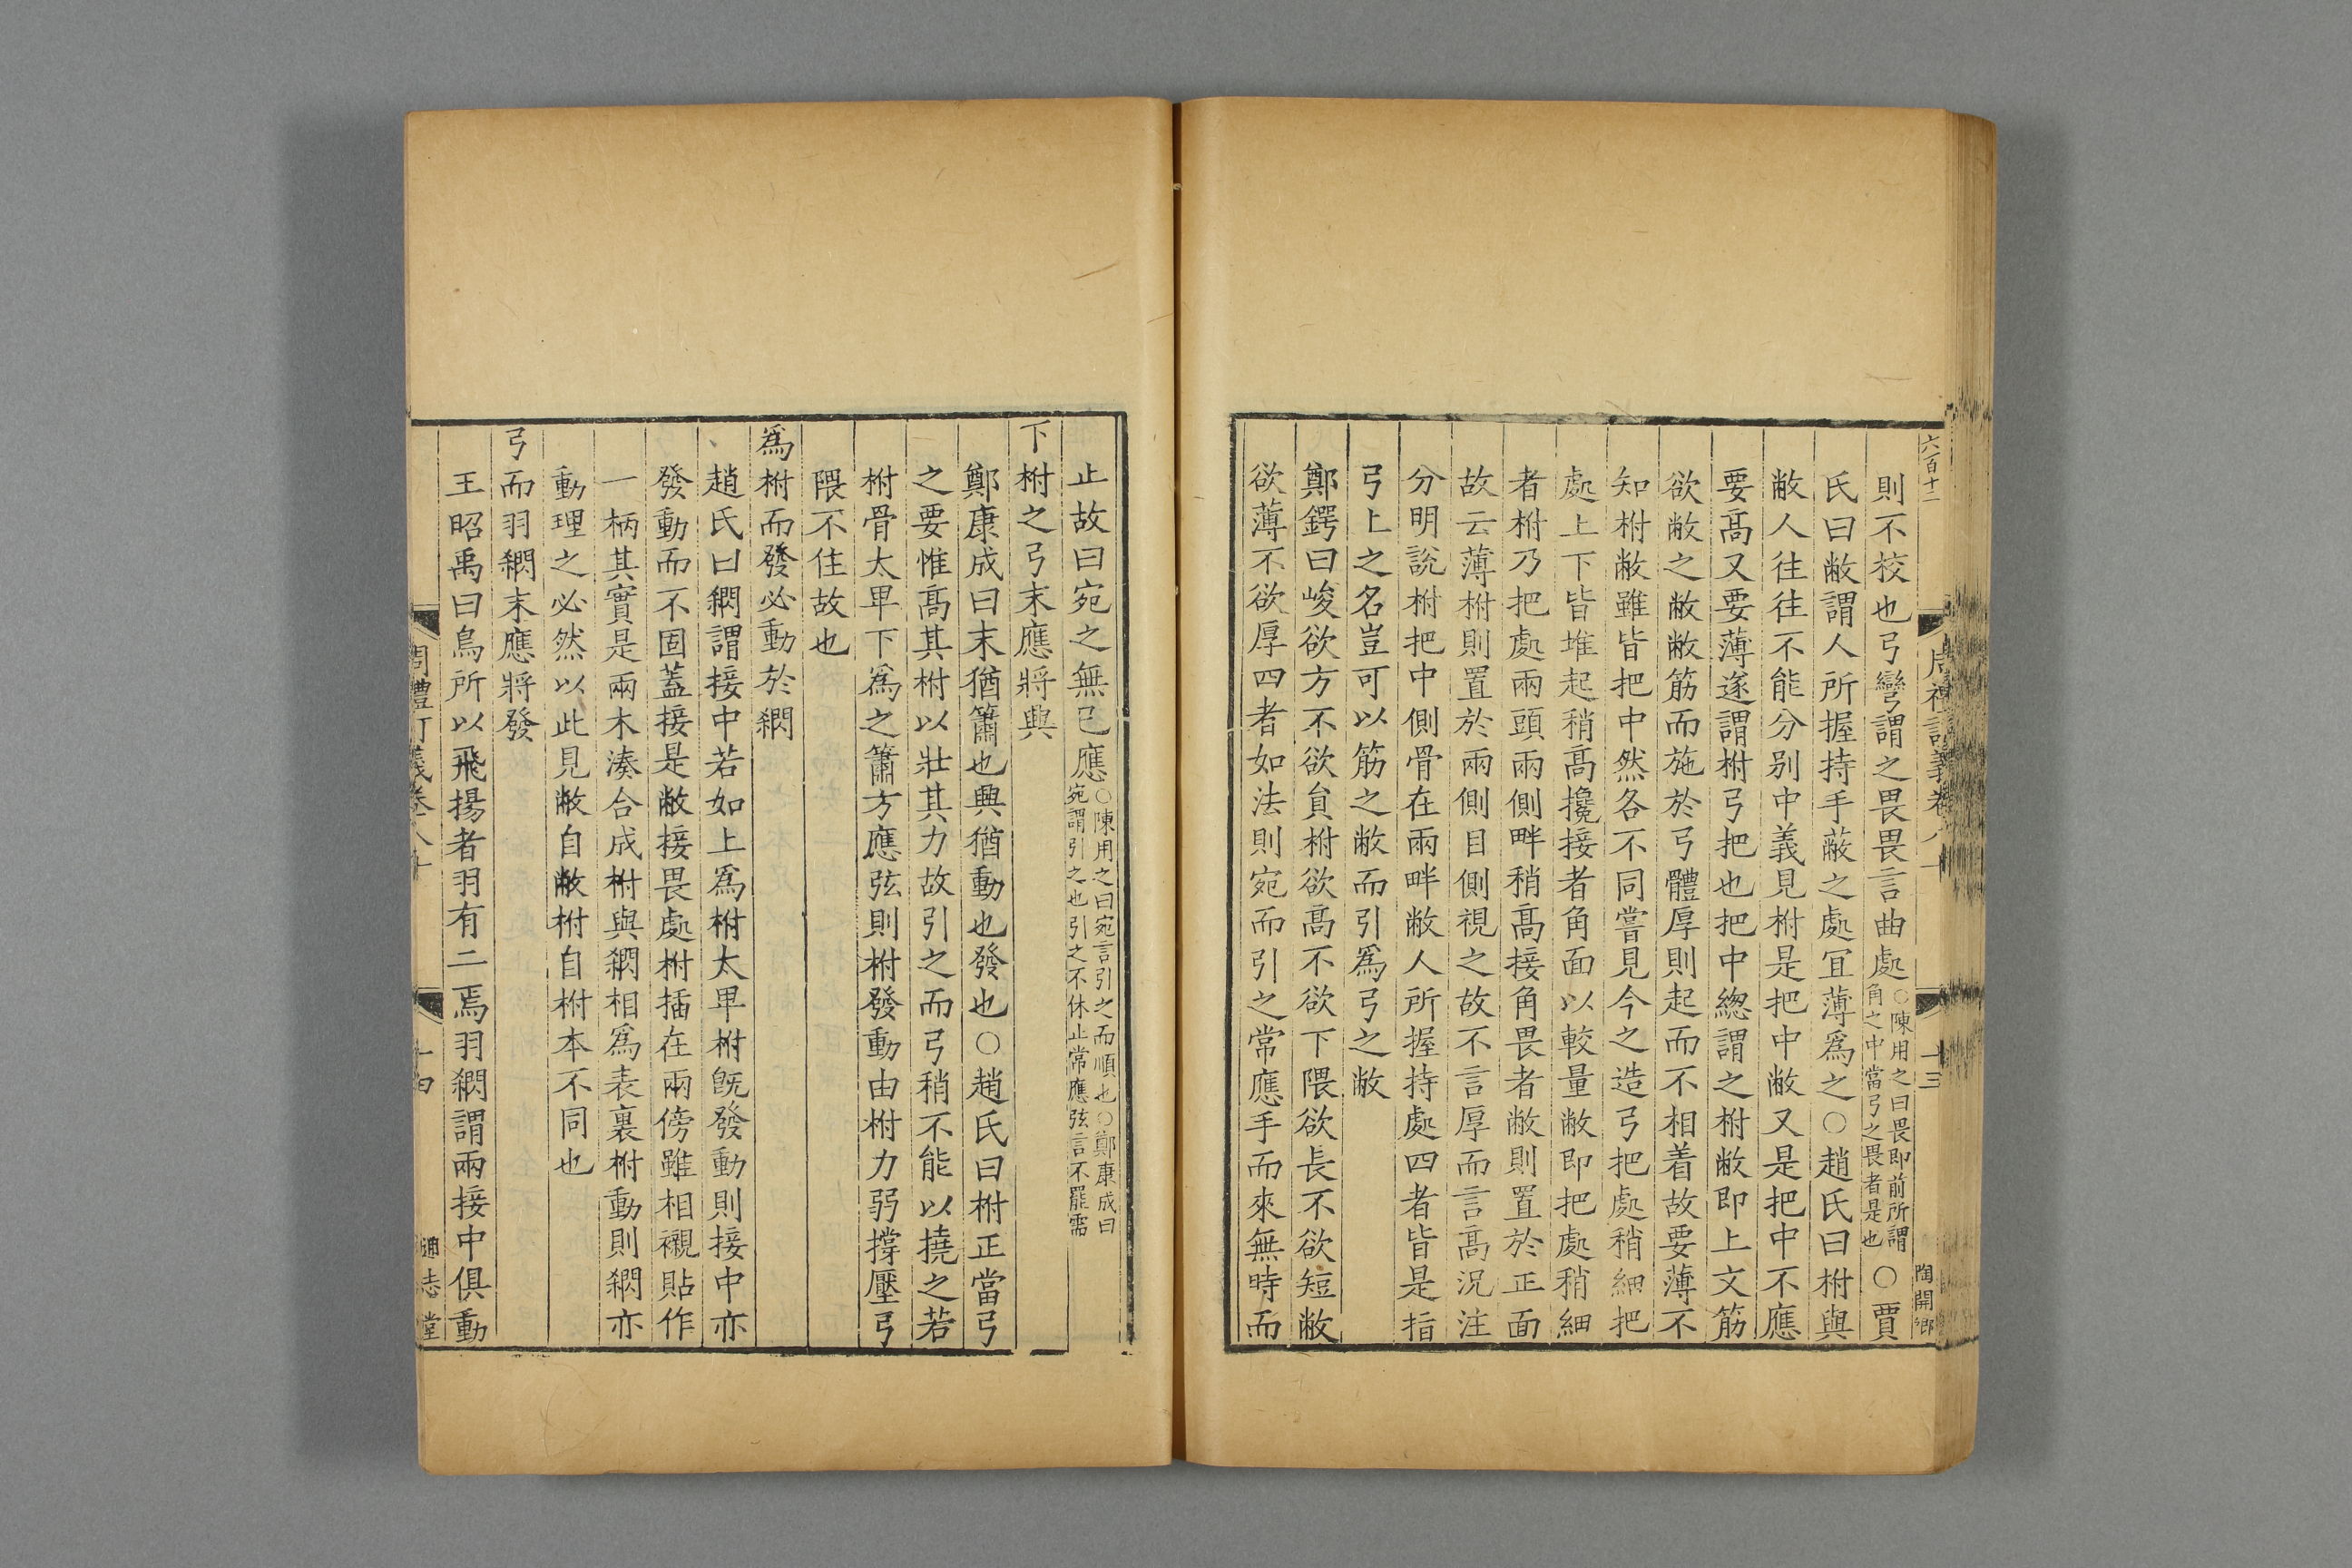 六百十二
周禮訂義卷八十
十三
陶開鄉
則不校也弓彎謂之畏畏言曲處○陳用之曰畏即前所謂角之中當弓之畏者是也○賈
氏曰敝謂人所握持手蔽之處宜薄爲之○趙氏曰柎與
敝人往往不能分别中義見柎是把中敝又是把中不應
要髙又要薄遂謂柎弓把也把中緫謂之柎敝即上文筋
欲敝之敝敝筋而施於弓體厚則起而不相着故要薄不
知柎敝雖皆把中然各不同嘗見今之造弓把處稍細把
處上下皆堆起稍髙攙接者角面以較量敝即把處稍細
者柎乃把處兩頭兩側畔稍髙接角畏者敝則置於正面
故云薄柎則置於兩側目側視之故不言厚而言髙況注
分明說柎把中側骨在兩畔敝人所握持處四者皆是指
弓上之名豈可以筋之敝而引爲弓之敝
鄭鍔曰峻欲方不欲貟柎欲髙不欲下隈欲長不欲短敝
欲薄不欲厚四者如法則宛而引之常應手而來無時而
止故曰宛之無已應○陳用之曰宛言引之而順也○鄭康成曰宛謂引之也引之不休止常應弦言不罷需
下柎之弓末應將興
鄭康成曰末猶簫也興猶動也發也○趙氏曰柎正當弓
之要惟髙其柎以壯其力故引之而弓稍不能以撓之若
柎骨太卑下爲之簫方應弦則柎發動由柎力弱撐壓弓
隈不住故也
爲柎而發必動於䌰
趙氏曰䌰謂接中若如上爲柎太卑柎旣發動則接中亦
發動而不固蓋接是敝接畏處柎插在兩傍雖相襯貼作
一柄其實是兩木湊合成柎與䌰相爲表裏柎動則䌰亦
動理之必然以此見敝自敝柎自柎本不同也
弓而羽䌰末應將發
王昭禹曰鳥所以飛揚者羽有二焉羽䌰謂兩接中俱動
周禮訂義卷八十
十四
通志堂